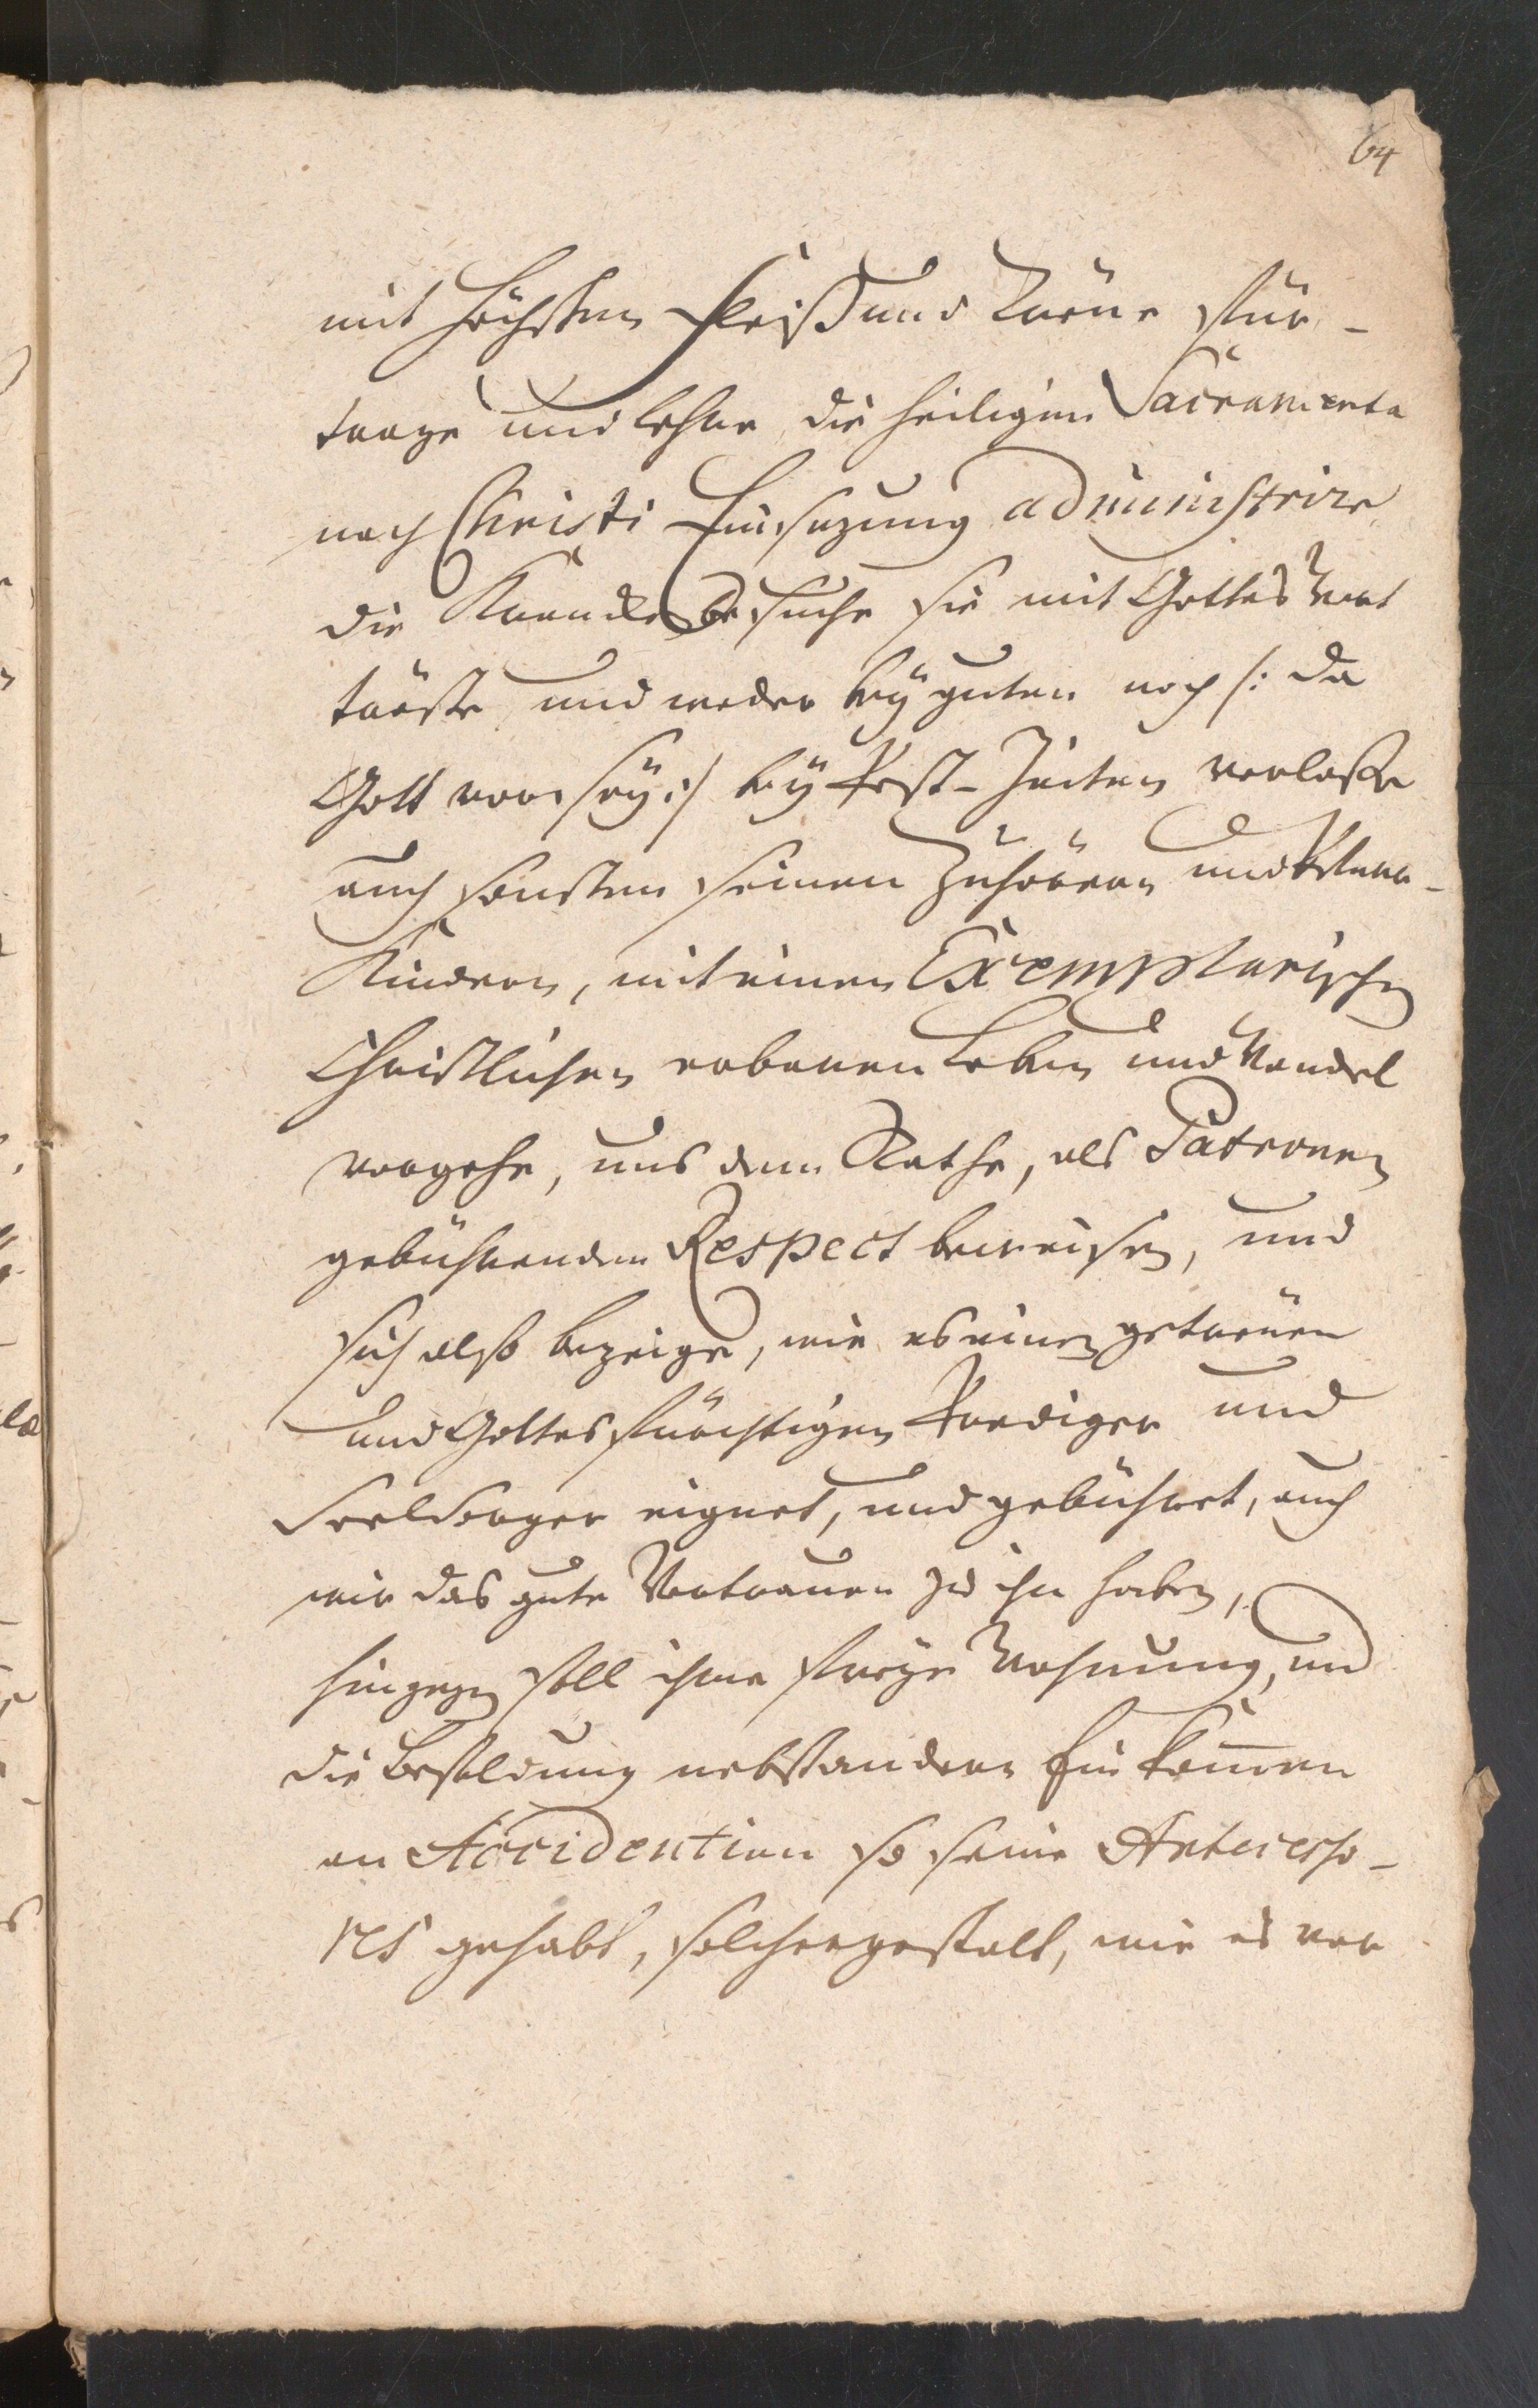 64
mit höchsten Fleiß und Treüe für-
trage und lehre die heiligen Sacramenta
nach Christi Einsezung administrire
die Krancken besuche sie mit Gottes Wort
tröste und weder bey guten noch /: da
Gott vor sey :/ bey Pest-Zeiten verlaße
auch sonsten seinen Zuhörern und Pfarr-
Kindern, mit einen Exemplarischen
Christlichen erbaren Leben und Wandel
vorgehe, uns dem Rathe, als Patronen
gebührenden Respect beweisen, und
sich also bezeige, wie es einen getreüen
und Gottesfürchtigen Prediger und
Seelsorger eignet, und gebühret, auch
wir das gute Vertrauen zu ihn haben,
hingegen soll ihme freye Wohnung, und
die Besoldung nebst andern Einkom̄en
an Accidentien so seine Antecesso-
res gehabt, solchergestalt, wie es vor